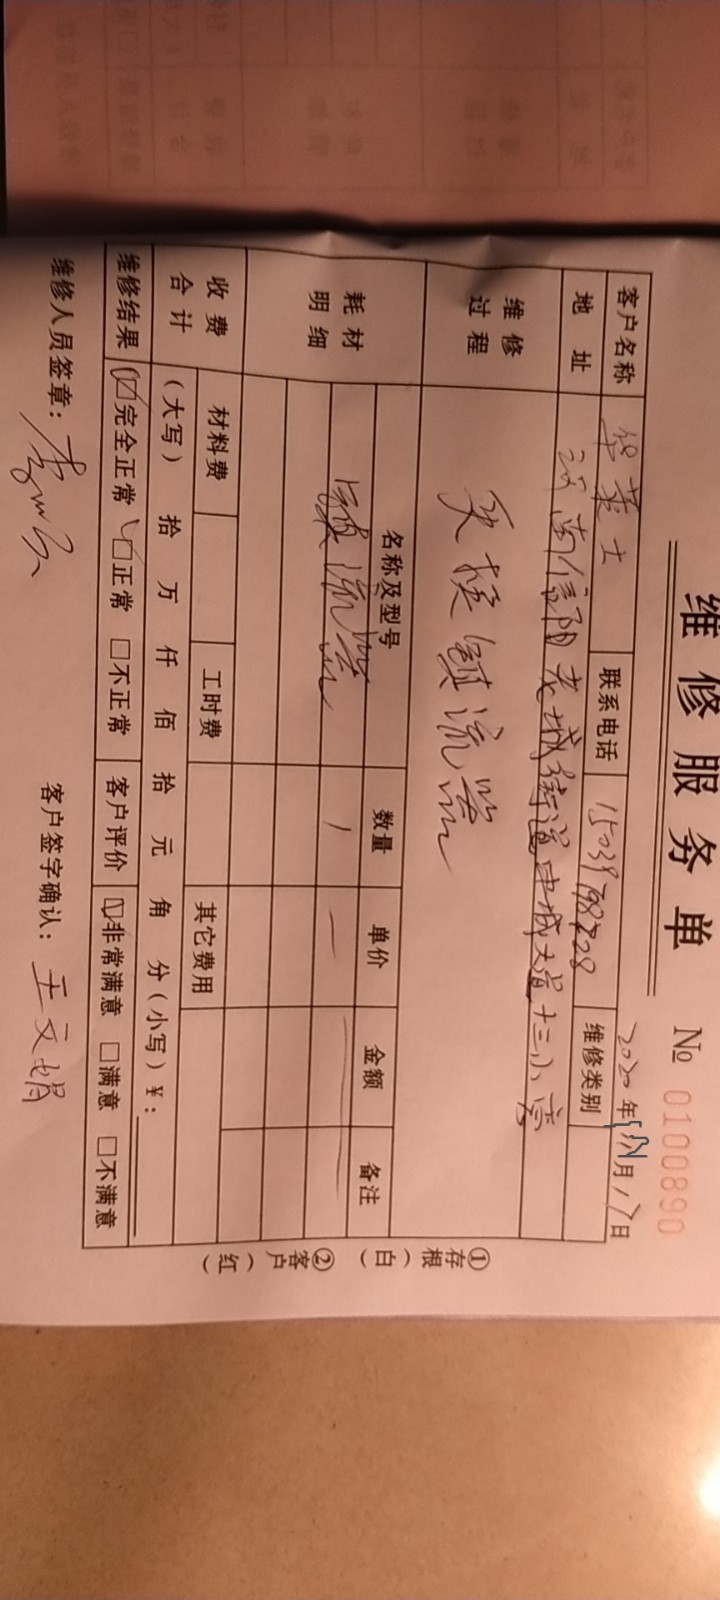 维修服务单 № 0100890
2020年 月17日
客户名称 华莱士 联系电话 维修类别
地址 河南信阳老城街道中城大道十三小旁
维修过程 更换镇流器
耗材明细 名称及型号 数量 单价 金额 备注
镇流器 1 — —
收费合计 材料费 工时费 其它费用
(大写) 拾 万 仟 佰 拾 元 角 分(小写)¥:
维修结果 ☑完全正常 □正常 □不正常 客户评价 ☑非常满意 □满意 □不满意
维修人员签章: 客户签字确认: 王文娟
①存根(白) ②客户(红)